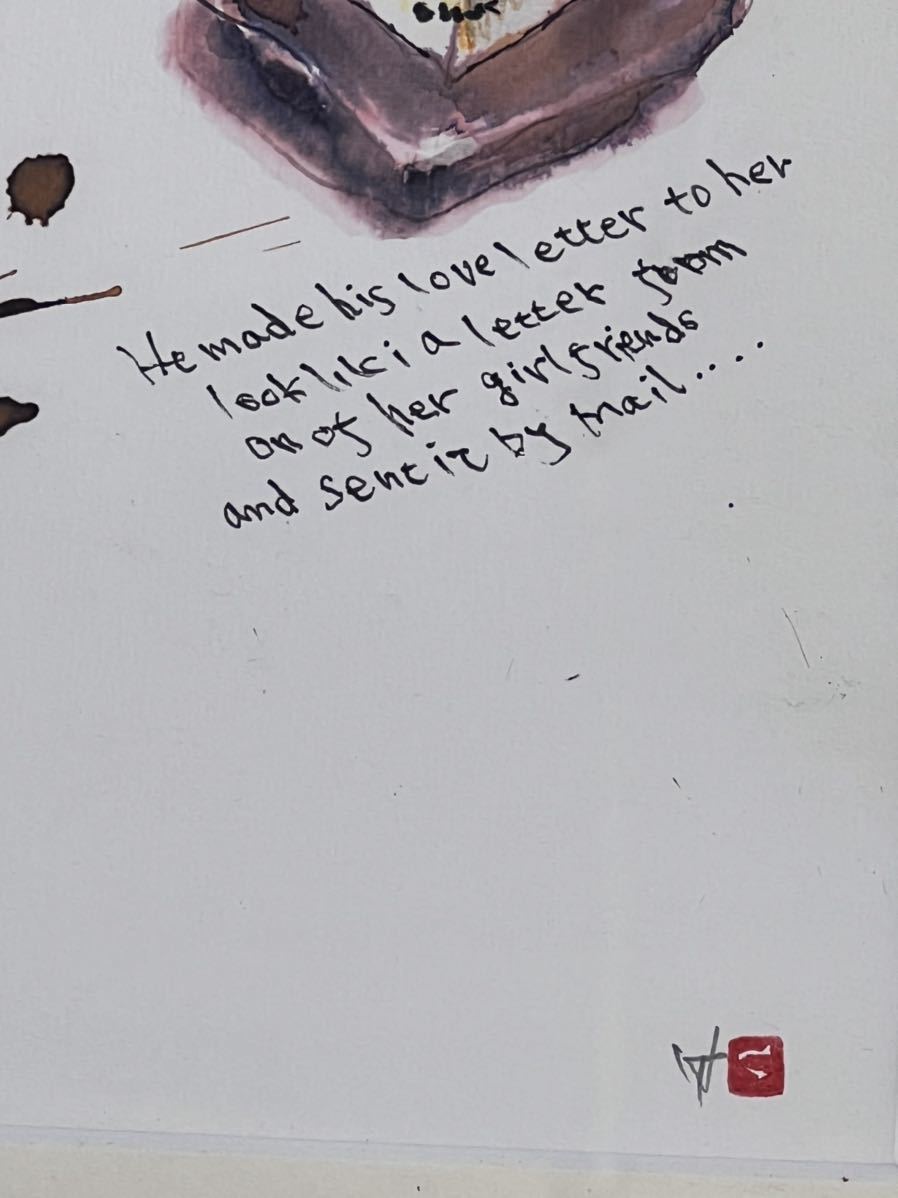 He made his love letter to her
look liki a letter from
on of her girlfriends
and sent it by mail....